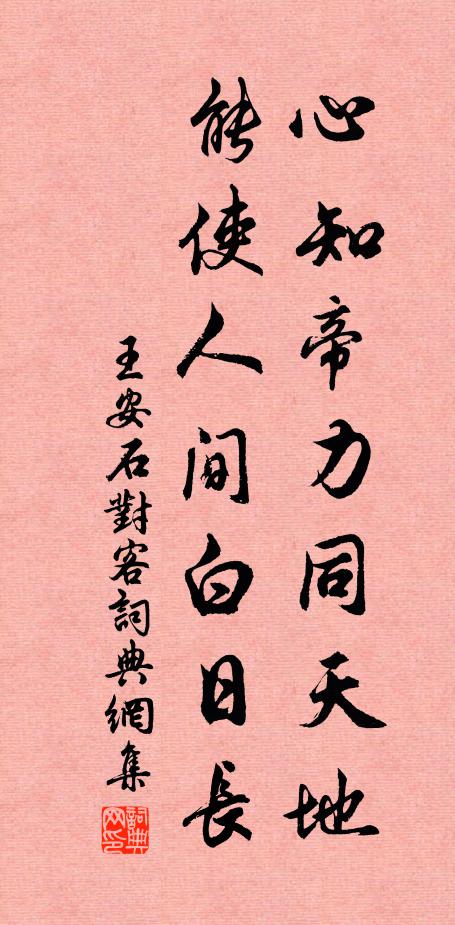 心知帝力同天地
能使人間白日長
王安石對客詞典網集
詞典
网印